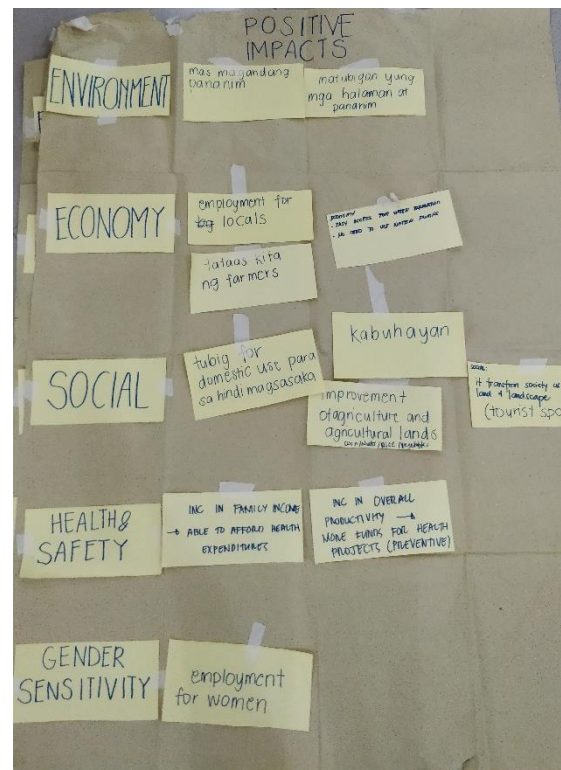 POSITIVE
IMPACTS
ENVIRONMENT
mas magandang
pananim
matubigan yung
mga halaman at
pananim
ECONOMY
employment for
locals
tataas kita
ng farmers
ECONOMY
- EASY ACCESS FOR WATER
- NO NEED TO USE WATER PUMPS
SOCIAL
tubig for
domestic use para
sa hindi magsasaka
Kabuhayan
improvement
of agriculture and
agricultural lands
SOCIAL:
it transform society
land & landscape
(tourist spo
HEALTH &
SAFETY
INC IN FAMILY INCOME
→ ABLE TO AFFORD HEALTH
EXPENDITURES
INC IN OVERALL
PRODUCTIVITY →
MORE FUNDS FOR HEALTH
PROJECTS (PREVENTIVE)
GENDER
SENSITIVITY
employment
for women